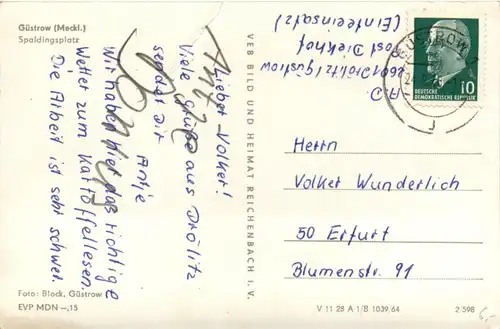 Güstrow (Meckl.)
Spaldingsplatz
Lieber Volker!
Viele Grüße aus Drölitz
sendet Dir
Antje
Wir haben hier das richtige
Wetter zum Kartoffellesen.
Die Arbeit ist sehr schwer.
Foto: Block, Güstrow
EVP MDN –,15
VEB BILD UND HEIMAT REICHENBACH I. V.
2601 Drölitz/Güstrow
Post Diekhof
(Ernteeinsatz)
GÜSTROW
DEUTSCHE
DEMOKRATISCHE REPUBLIK
10
Herrn
Volker Wunderlich
50 Erfurt
Blumenstr. 91
V 11 28 A 1/B 1039.64
2 598
6,-